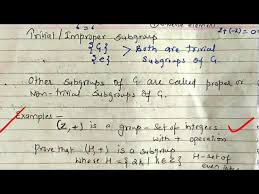 2+(-2) = 0
Trivial / Improper Subgroup
{G} > Both are trivial
{e} Subgroups of G.
Other Subgroups of G are called proper or
non-trivial Subgroups of G.
Examples -
(Z,+) is a group - Set of integers
with + operation
Prove that (H,+) is a subgroup
where H = {2k | k∈Z} H-set of
even integ